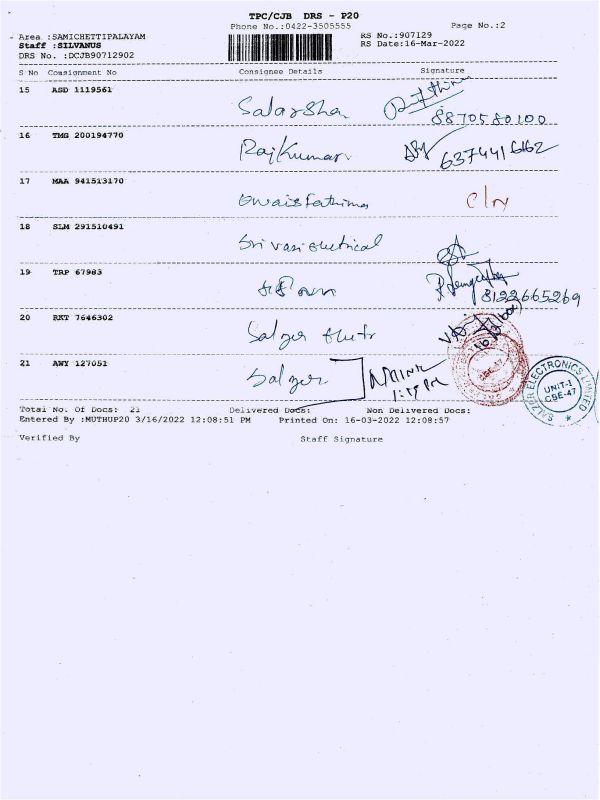 TPC/CJB DRS - P20
Phone No.:0422-3505555
Page No.:2
Area :SAMICHETTIPALAYAM
RS No.:907129
Staff :SILVANUS
RS Date:16-Mar-2022
DRS No. :DCJB90712902
S No Consignment No Consignee Details Signature
15 ASD 1119561
Salarsha
8870580100
16 TMG 200194770
RajKumar
6374416162
17 MAA 941513170
Owaisfathima
18 SLM 291510491
Sri vasi electrical
19 TRP 67983
8122665269
20 RKT 7646302
Salzer
21 AWY 127051
Salzer
SALZER ELECTRONICS LIMITED
UNIT-1
CBE-47
Total No. Of Docs: 21 Delivered Docs: Non Delivered Docs:
Entered By :MUTHUP20 3/16/2022 12:08:51 PM Printed On: 16-03-2022 12:08:57
Verified By Staff Signature